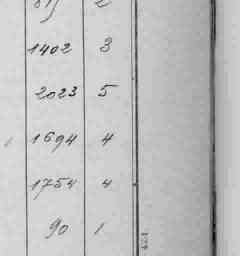 1402 3
2023 5
1694 4
1754 4
90 1